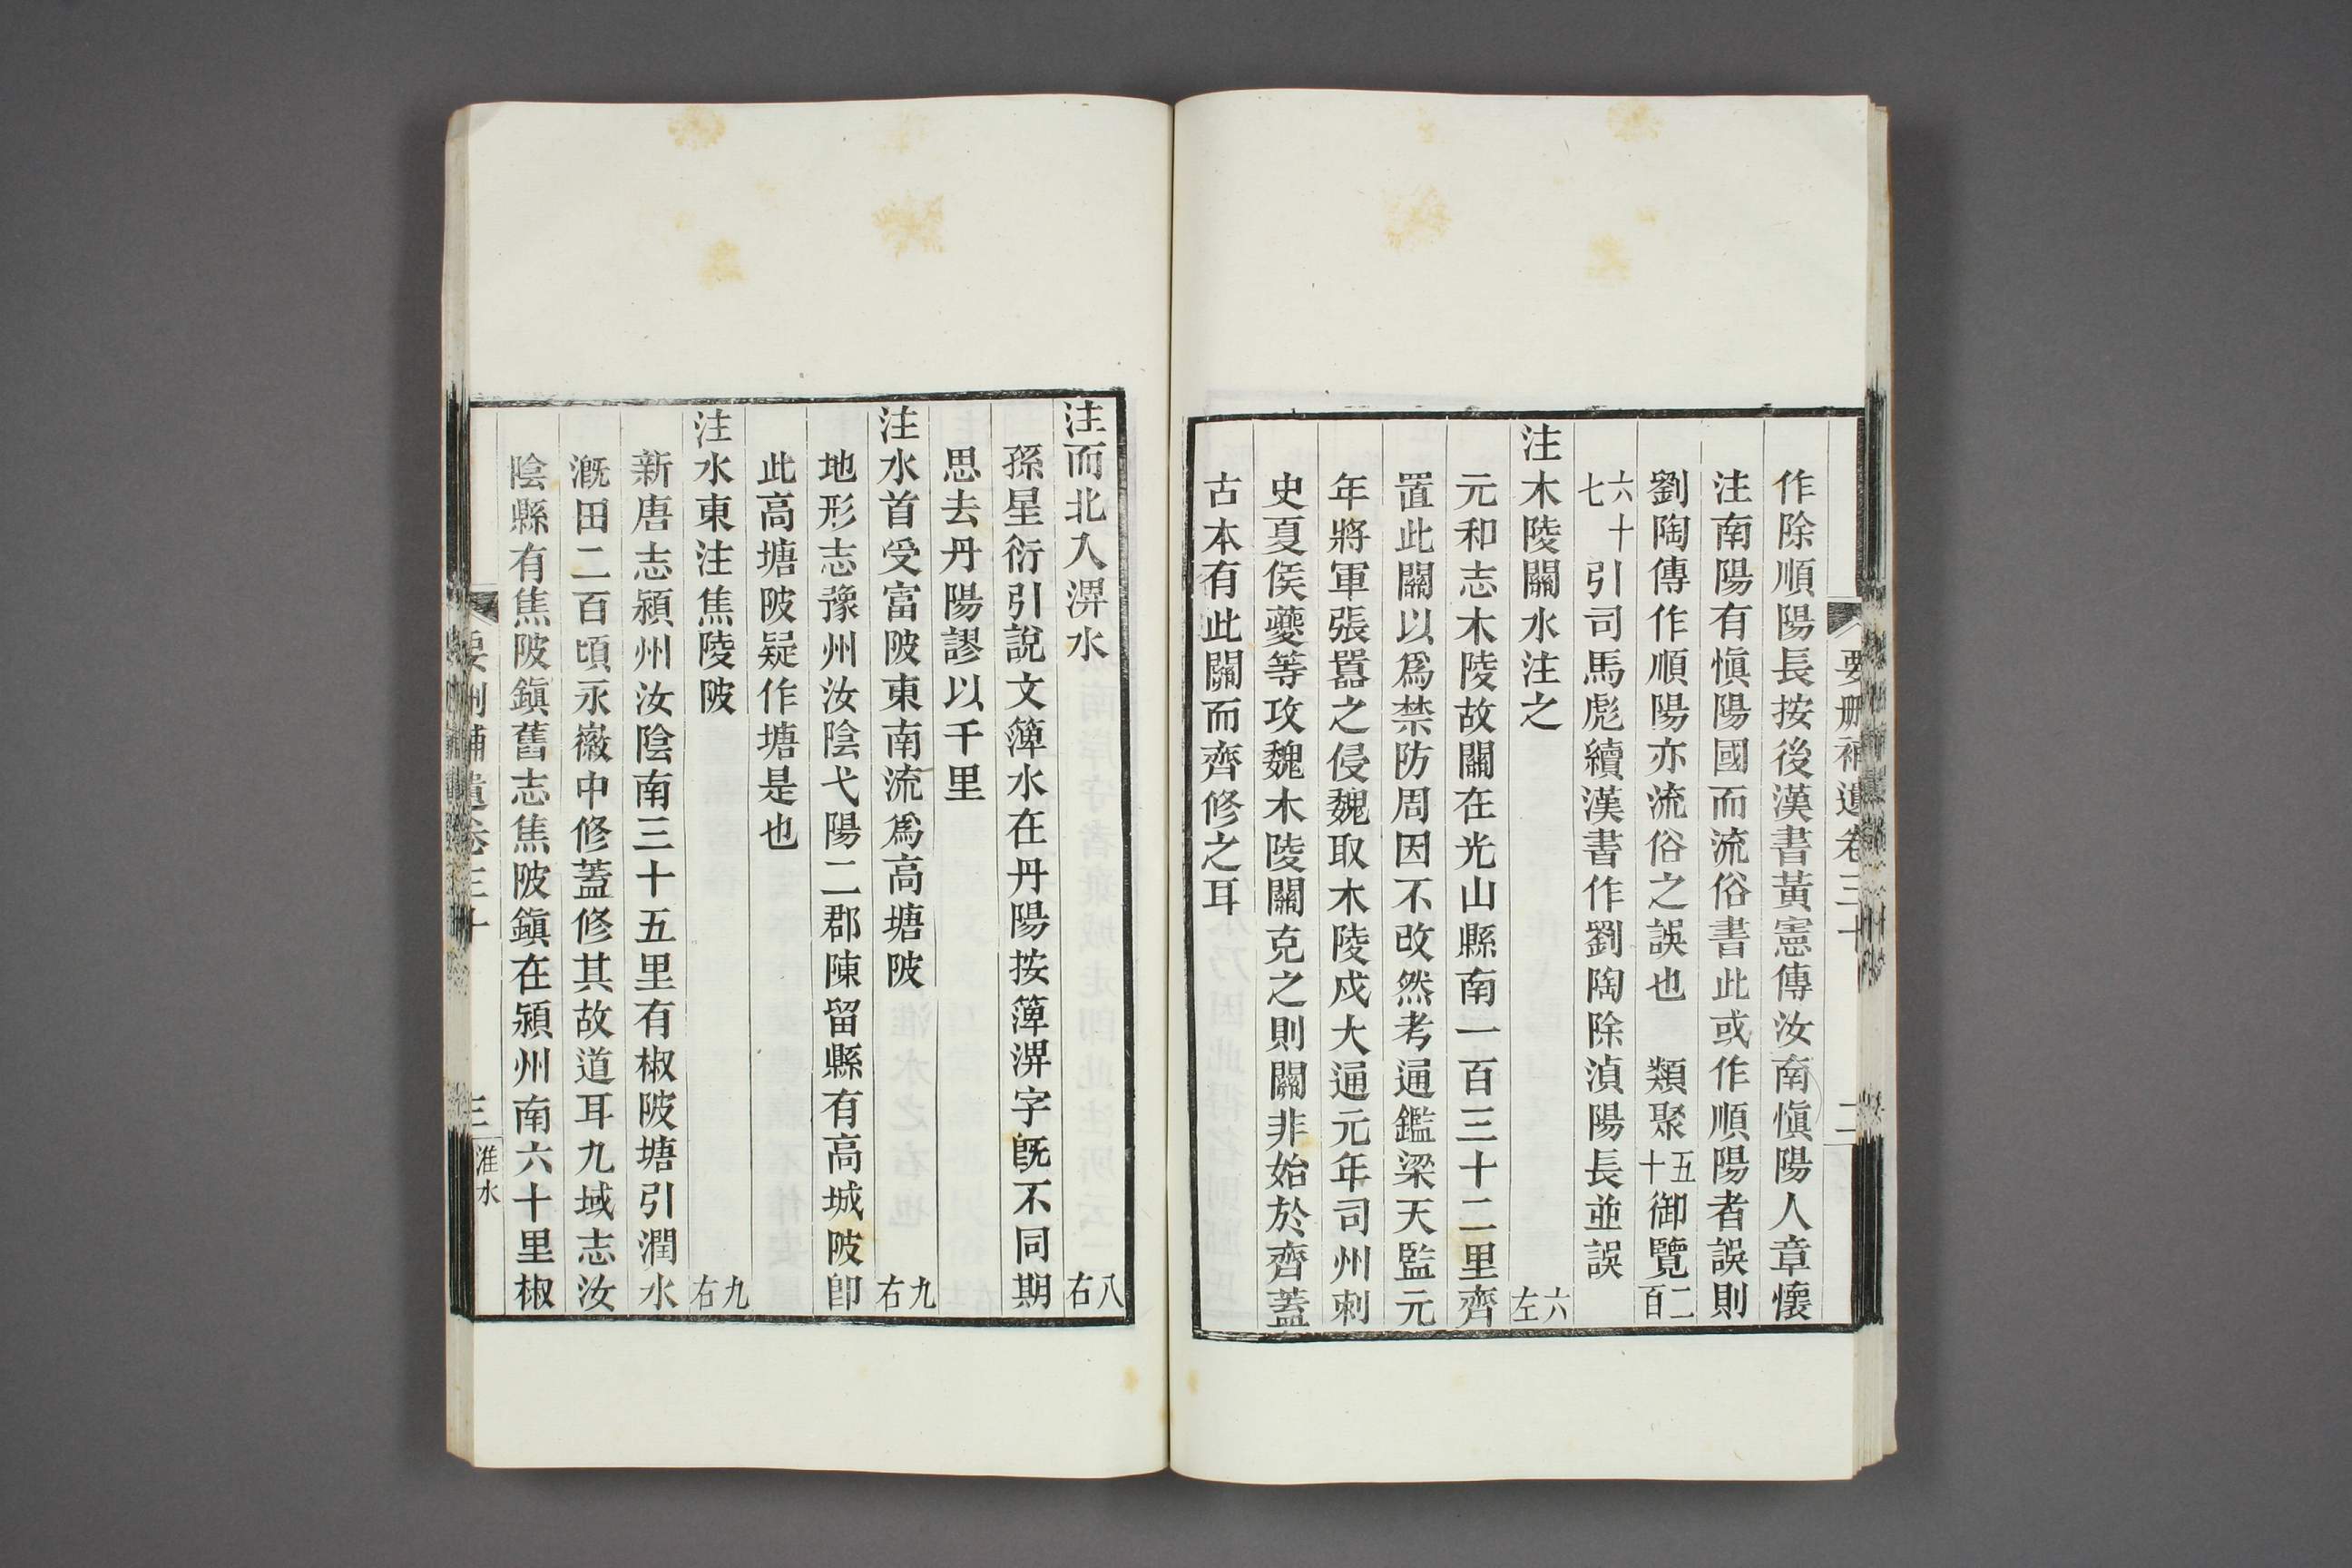 要刪補遺卷三十
二
作除順陽長按後漢書黃憲傳汝南愼陽人章懷
注南陽有愼陽國而流俗書此或作順陽者誤則
劉陶傳作順陽亦流俗之誤也　類聚五十御覽二百
六十七引司馬彪續漢書作劉陶除湞陽長並誤
注木陵關水注之　六左
元和志木陵故關在光山縣南一百三十二里齊
置此關以爲禁防周因不改然考通鑑梁天監元
年將軍張囂之侵魏取木陵戍大通元年司州刺
史夏侯夔等攻魏木陵關克之則關非始於齊蓋
古本有此關而齊修之耳
注而北入淠水　八右
孫星衍引說文簰水在丹陽按簰淠字旣不同期
思去丹陽謬以千里
注水首受富陂東南流爲高塘陂　九右
地形志豫州汝陰弋陽二郡陳留縣有高城陂卽
此高塘陂疑作塘是也
注水東注焦陵陂　九右
新唐志潁州汝陰南三十五里有椒陂塘引潤水
漑田二百頃永徽中修蓋修其故道耳九域志汝
陰縣有焦陂鎭舊志焦陂鎭在潁州南六十里椒
要刪補遺卷三十
三
淮水